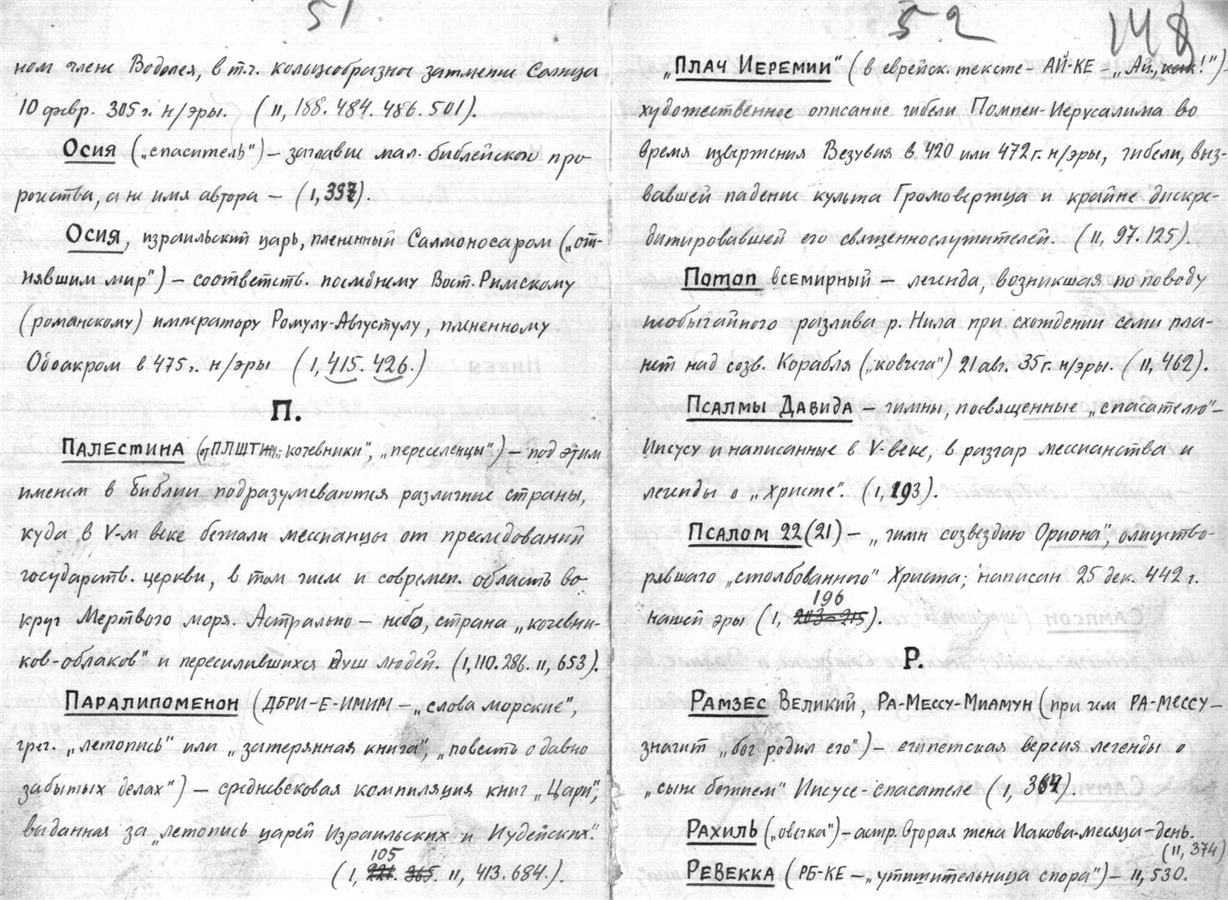 51
ном члене Водолея, в т.ч. кольцеобразное затмение Солнца
10 февр. 305 г. н/эры. (II, 188. 484. 486. 501).
Осия („спаситель“) – заглавие мал. библейского про-
рочества, а не имя автора – (I, 397).
Осия, израильский царь, плененный Салмоносаром („от-
нявшим мир“) – соответств. последнему Вост. Римскому
(романскому) императору Ромулу-Августулу, плененному
Одоакром в 475 г. н/эры (I, 415. 426.)
П.
Палестина (от ПЛШТИМ – „кочевники“, „переселенцы“) – под этим
именем в библии подразумеваются различные страны,
куда в V-м веке бежали мессианцы от преследований
государств. церкви, в том числе и современ. область во-
круг Мертвого моря. Астрально – небо, страна „кочевни-
ков-облаков“ и переселившихся душ людей. (I, 110. 286. II, 653).
Паралипоменон (ДБРИ-Е-ИМИМ – „слова морские“,
греч. „летопись“ или „затерянная книга“, „повесть о давно
забытых делах“) – средневековая компиляция книг „Цари“,
выданная за „летопись царей Израильских и Иудейских“.
105
(I, 221. 365. II, 413. 684.).
52
148
„Плач Иеремии“ (в еврейск. тексте – АЙ-КЕ – „Ай, как!“) –
художественное описание гибели Помпеи-Иерусалима во
время извержения Везувия в 420 или 472 г. н/эры, гибели, выз-
вавшей падение культа Громовержца и крайне дискре-
дитировавшей его священнослужителей. (II, 97. 125).
Потоп всемирный – легенда, возникшая по поводу
необычайного разлива р. Нила при схождении семи пла-
нет над созв. Корабля („ковчега“) 21 авг. 35 г. н/эры. (II, 462).
Псалмы Давида – гимны, посвященные „спасателю“ –
Иисусу и написанные в V-веке, в разгар мессианства и
легенды о „христе“. (I, 193).
Псалом 22 (21) – „гимн созвездию Ориона“, олицетво-
рявшаго „столбованного“ Христа; написан 25 дек. 442 г.
196
нашей эры (I, 203-215).
Р.
Рамзес Великий, Ра-Мессу-Миамун (при чем РА-МЕССУ –
значит „бог родил его“) – египетская версия легенды о
„сыне божием“ Иисусе-спасателе (I, 364).
Рахиль („овечка“) – астр. вторая жена Иакова-месяца – день.
(II, 374)
Ревекка (РБ-КЕ – „утишительница спора“) – II, 530.